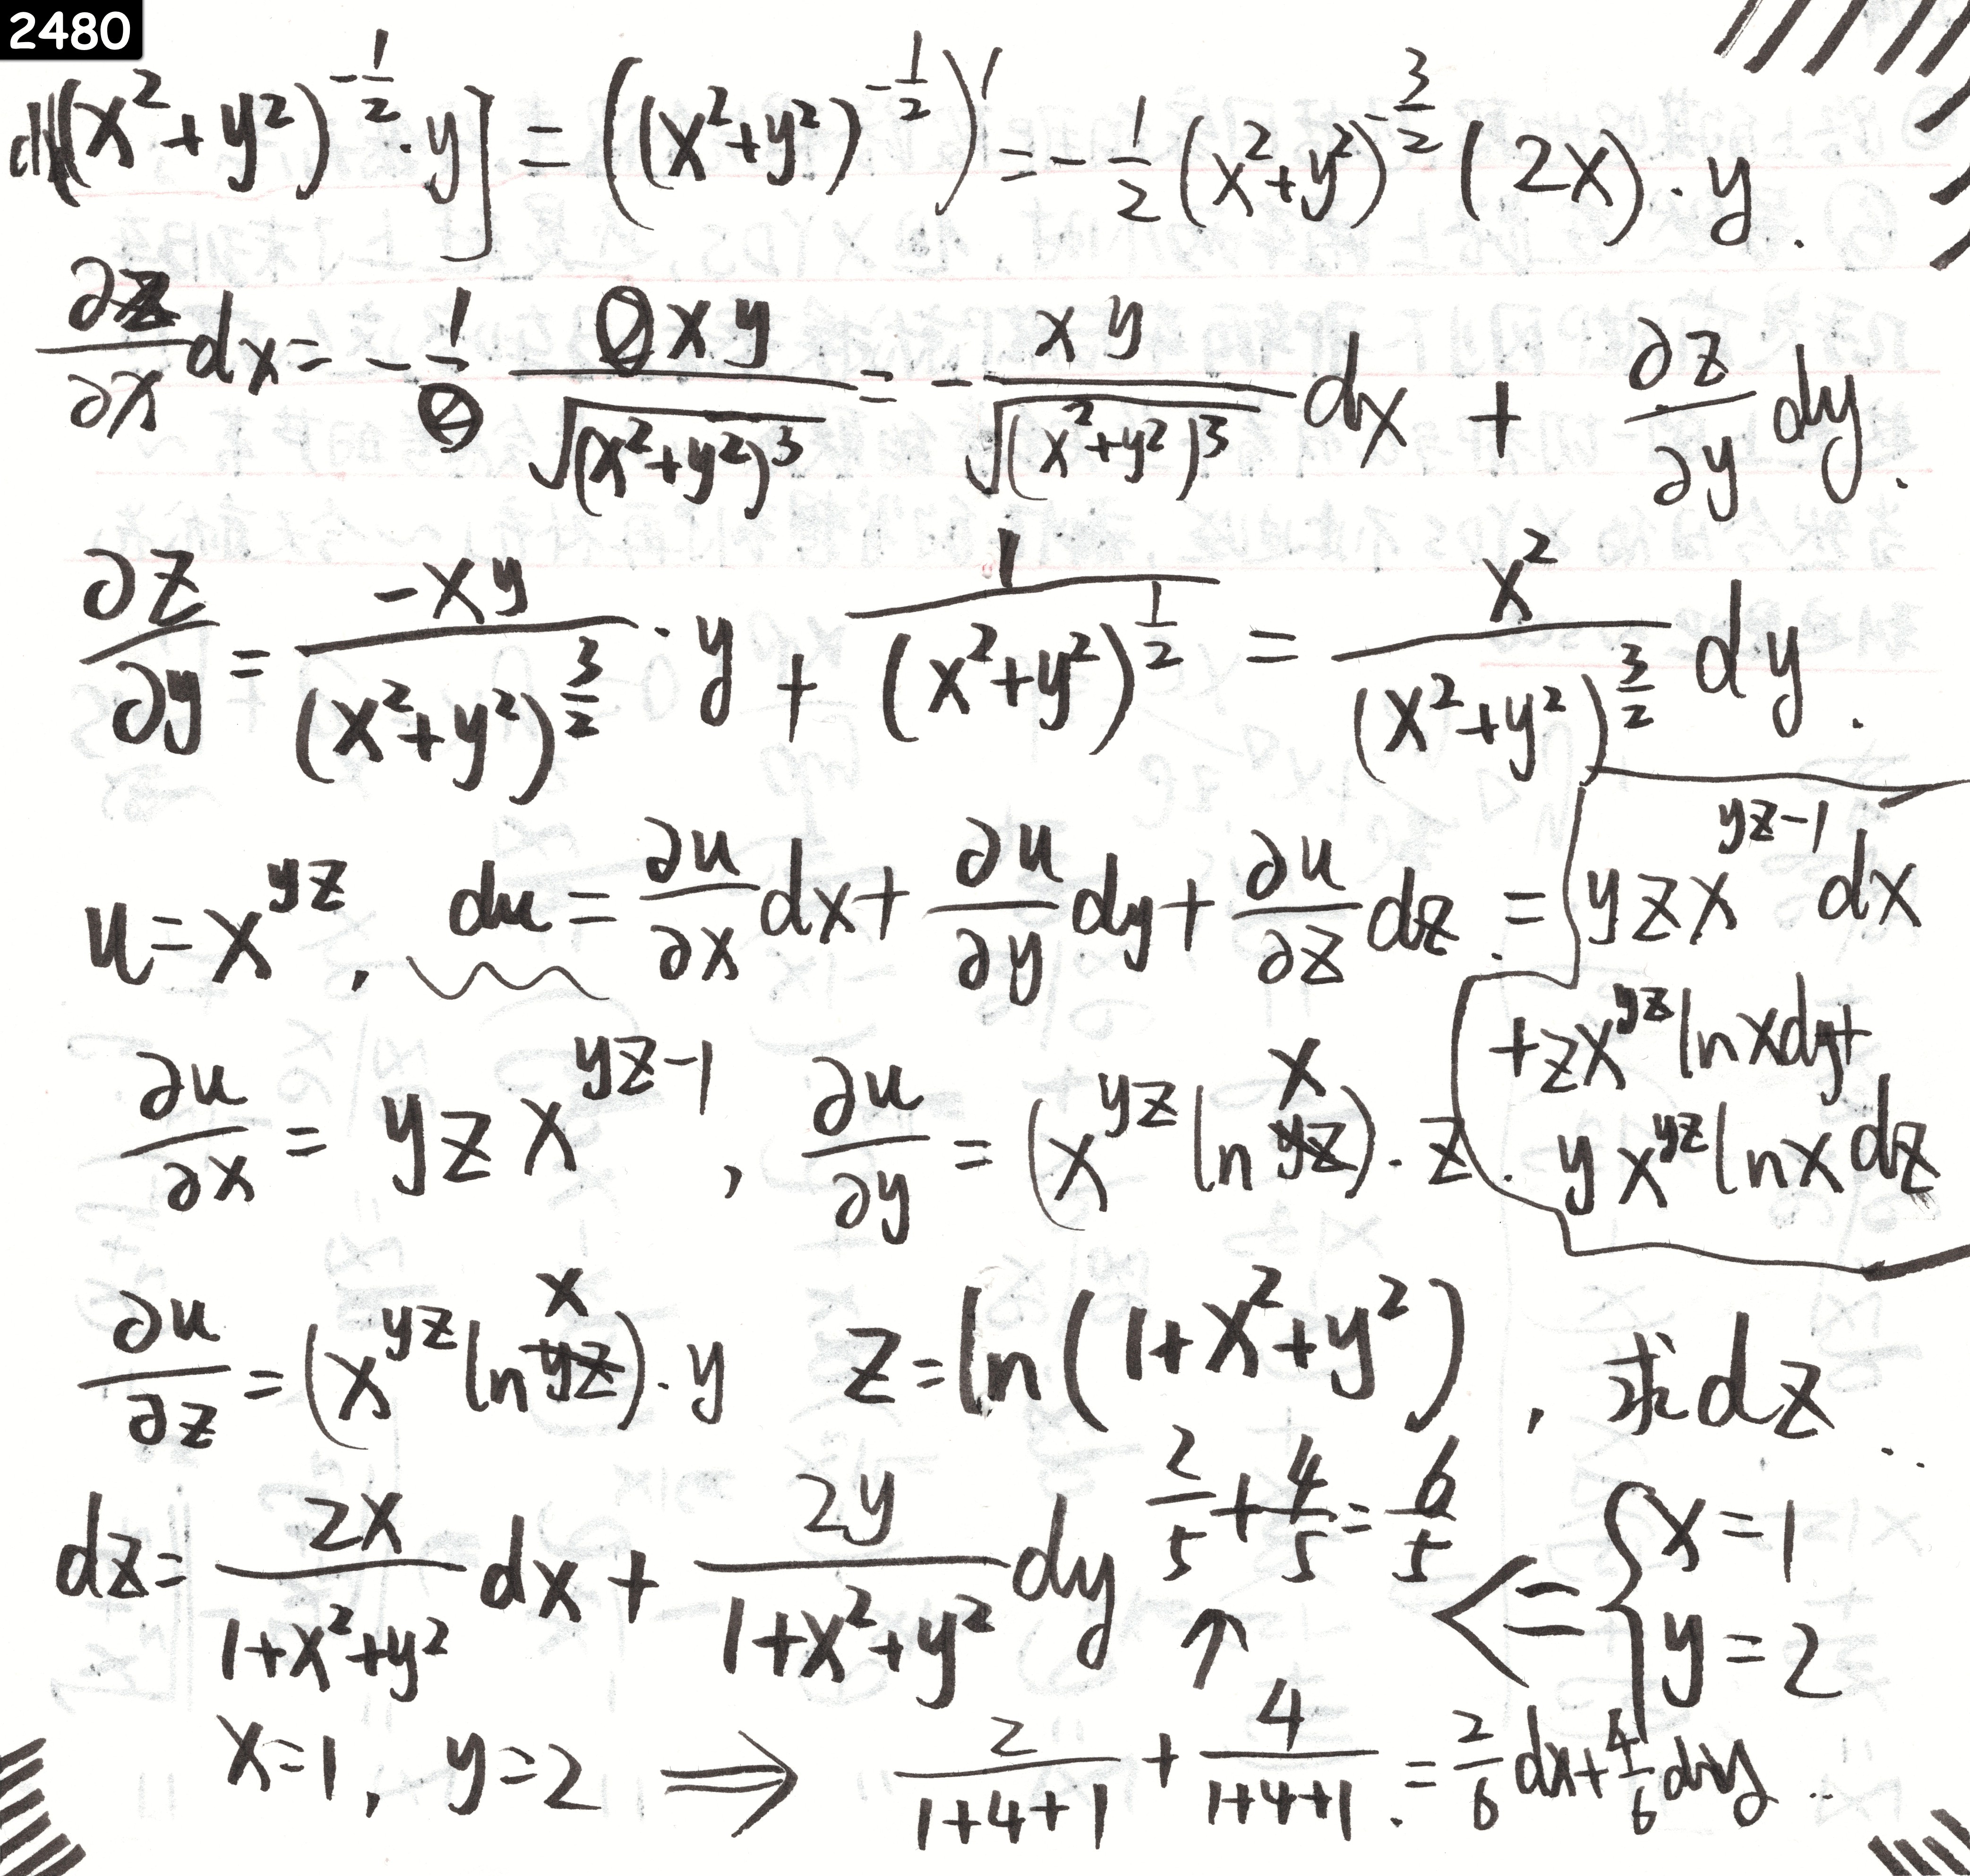 2480
d[(x²+y²)^{-1/2}·y] = ((x²+y²)^{-1/2})' = -1/2 (x²+y²)^{-3/2} (2x)·y.
∂z/∂x dx = -1/2 2xy/√(x²+y²)³ = - xy/√(x²+y²)³ dx + ∂z/∂y dy.
∂z/∂y = -xy/(x²+y²)^{3/2} · y + 1/(x²+y²)^{1/2} = x²/(x²+y²)^{3/2} dy.
u=x^{yz}, du = ∂u/∂x dx + ∂u/∂y dy + ∂u/∂z dz. = yzx^{yz-1}dx
+zx^{yz}lnxdy+
yx^{yz}lnxdz
∂u/∂x = yzx^{yz-1}, ∂u/∂y = (x^{yz}ln x)·z.
∂u/∂z = (x^{yz}ln x)·y z=ln(1+x²+y²), 求dz..
dz= 2x/(1+x²+y²) dx + 2y/(1+x²+y²) dy 2/5+4/5=6/5 <= {x=1 y=2
↑
x=1, y=2 ⇒ 2/(1+4+1) + 4/(1+4+1). = 2/6 dx+4/6 dy..